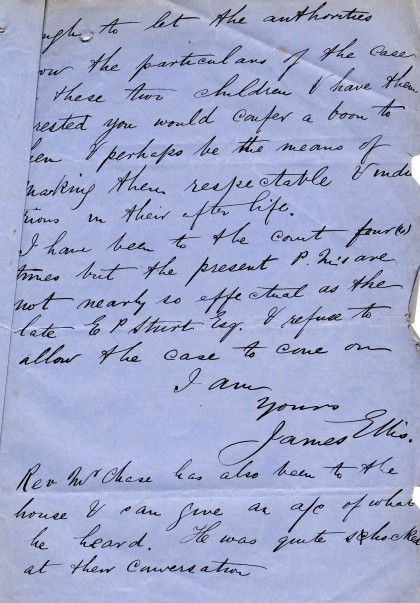 ugh to let the authorities
ow the particulars of the case
these two children & have them
rested you would confer a boon to
em & perhaps be the means of
making them respectable & indu
rious in their after life.
I have been to the court four (4)
times but the present P. M's are
not nearly so effectual as the
late E P Sturt Esq. & refuse to
allow the case to come on
I am
Yours
James Ellis.
Rev Mr Chase has also been to the
house & can give an a/c of what
he heard. He was quite schocked
at their conversation